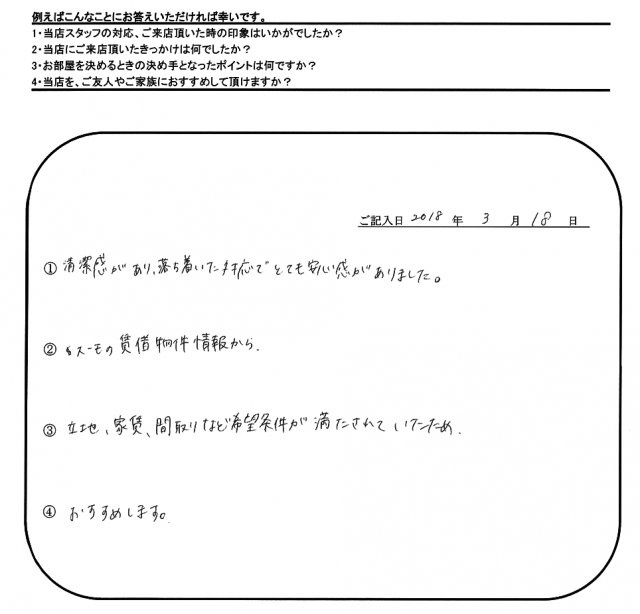 例えばこんなことにお答えいただければ幸いです。
1・当店スタッフの対応、ご来店頂いた時の印象はいかがでしたか？
2・当店にご来店頂いたきっかけは何でしたか？
3・お部屋を決めるときの決め手となったポイントは何ですか？
4・当店を、ご友人やご家族におすすめして頂けますか？
ご記入日 2018 年 3 月 18 日
① 清潔感があり、落ち着いた対応でとても安心感がありました。
② スーモの賃借物件情報から.
③ 立地、家賃、間取りなど希望条件が満たされていたため.
④ おすすめします。